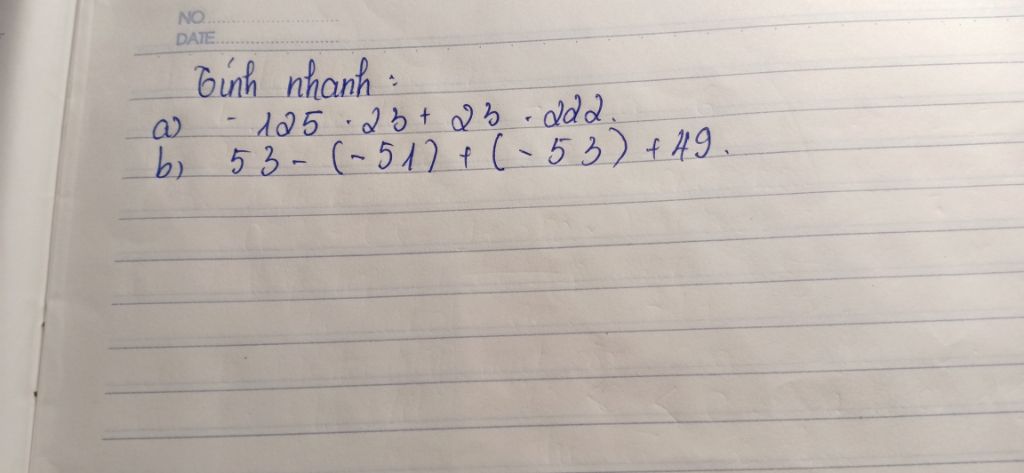 NO
DATE
Tính nhanh :
a) - 125 . 23 + 23 . 222.
b) 53 - (-51) + (-53) + 49.